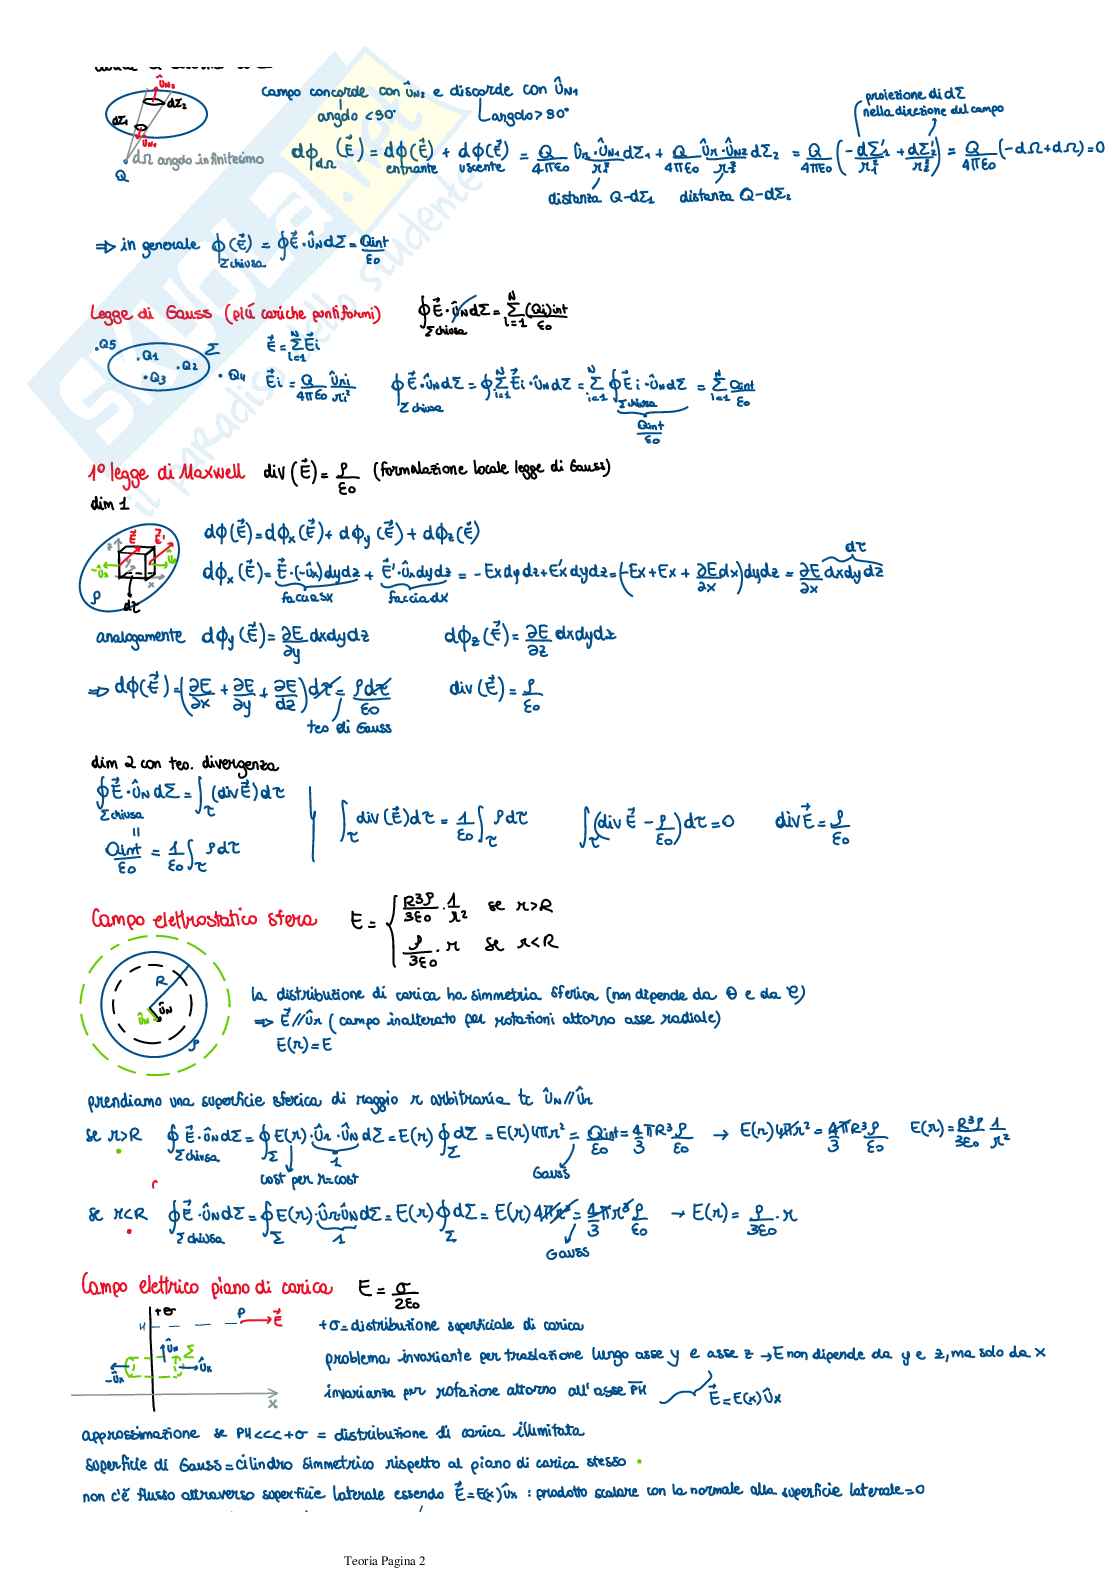 campo concorde con û_N2 e discorde con û_N1
angolo <90° angolo >90°
proiezione di dΣ
nella direzione del campo
û_N2
dΣ2
dΣ1
û_N1
dΩ angolo infinitesimo
Q
dϕ_dΩ(E⃗) = dϕ(E⃗) entrante + dϕ(E⃗) uscente = Q/4πε0 û_r·û_N1 dΣ1/r1² + Q/4πε0 û_r·û_N2 dΣ2/r2² = Q/4πε0 (-dΣ1'/r1² + dΣ2'/r2²) = Q/4πε0 (-dΩ+dΩ)=0
distanza Q-dΣ1 distanza Q-dΣ2
⇒ in generale ϕ(E⃗) Σchiusa = ∮E⃗·û_N dΣ = Qint/ε0
Legge di Gauss (più cariche puntiformi) ∮Σchiusa E⃗·û_N dΣ = Σ i=1 N (Qi)int/ε0
.Q5 .Q1 .Q2 .Q3 .Q4 Σ
E⃗ = Σ i=1 N E⃗i
E⃗i = Q/4πε0 û_ri/ri² ∮Σchiusa E⃗·û_N dΣ = ∮ Σ i=1 N E⃗i·û_N dΣ = Σ i=1 N ∮Σchiusa E⃗i·û_N dΣ = Σ i=1 N Qint/ε0
Qint/ε0
1° legge di Maxwell div(E⃗) = ρ/ε0 (formulazione locale legge di Gauss)
dim 1
dϕ(E⃗) = dϕx(E⃗) + dϕy(E⃗) + dϕz(E⃗)
E⃗ E⃗' -ûx ρ dτ
dτ
dϕx(E⃗) = E⃗·(-ûx)dydz + E⃗'·ûx dydz = -Ex dydz + E'x dydz = (-Ex+Ex + ∂E/∂x dx)dydz = ∂E/∂x dxdydz
faccia sx faccia dx
analogamente dϕy(E⃗) = ∂E/∂y dxdydz dϕz(E⃗) = ∂E/∂z dxdydz
⇒ dϕ(E⃗) = (∂E/∂x + ∂E/∂y + ∂E/∂z)dτ = ρdτ/ε0 div(E⃗) = ρ/ε0
teo di Gauss
dim 2 con teo. divergenza
∮Σchiusa E⃗·û_N dΣ = ∫τ (div E⃗)dτ
∫τ div(E⃗)dτ = 1/ε0 ∫τ ρdτ ∫τ (div E⃗ - ρ/ε0)dτ = 0 div E⃗ = ρ/ε0
Qint/ε0 = 1/ε0 ∫τ ρdτ
Campo elettrostatico sfera E = { R³ρ/3ε0 · 1/r² se r>R
ρ/3ε0 · r se r<R
R û_N û_N ρ
la distribuzione di carica ha simmetria sferica (non dipende da θ e da φ)
⇒ E⃗//û_r (campo inalterato per rotazioni attorno asse radiale)
E(r)=E
prendiamo una superficie sferica di raggio r arbitraria tc û_N//û_r
se r>R ∮Σchiusa E⃗·û_N dΣ = ∮Σ E(r)·û_r·û_N dΣ = E(r)∮Σ dΣ = E(r)4πr² = Qint/ε0 = 4/3 πR³ ρ/ε0 → E(r)4πr² = 4/3 πR³ ρ/ε0 E(r) = R³ρ/3ε0 1/r²
cost per r=cost 1 Gauss
se r<R ∮Σchiusa E⃗·û_N dΣ = ∮Σ E(r)·û_r û_N dΣ = E(r)∮Σ dΣ = E(r)4πr² = 4/3 πr³ ρ/ε0 → E(r) = ρ/3ε0 · r
1 Gauss
Campo elettrico piano di carica E = σ/2ε0
+σ H P E⃗
û_N Σ -ûx ûx
x
+σ = distribuzione superficiale di carica
problema invariante per traslazione lungo asse y e asse z → E non dipende da y e z, ma solo da x
invarianza per rotazione attorno all'asse PH E⃗ = E(x)ûx
approssimazione se PH<<<+σ = distribuzione di carica illimitata
superficie di Gauss = cilindro simmetrico rispetto al piano di carica stesso
non c'è flusso attraverso superficie laterale essendo E⃗ = E(x)ûx : prodotto scalare con la normale alla superficie laterale = 0
Teoria Pagina 2